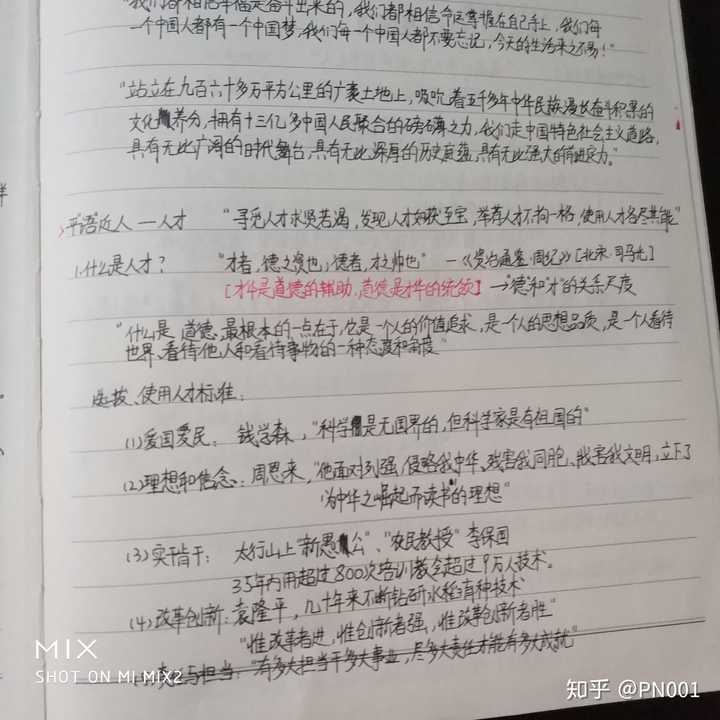 "我们都相信幸福是奋斗出来的，我们都相信命运掌握在自己手上，我们每
一个中国人都有一个中国梦，我们每一个中国人都不要忘记，今天的生活来之不易！"
"站立在九百六十多万平方公里的广袤土地上，吸吮着五千多年中华民族漫长奋斗积累的
文化养分，拥有十三亿多中国人民聚合的磅礴之力，我们走中国特色社会主义道路，
具有无比广阔的时代舞台，具有无比深厚的历史底蕴，具有无比强大的前进定力。"
平"语"近人 — 人才 "寻觅人才求贤若渴，发现人才如获至宝，举荐人才不拘一格，使用人才各尽其能"
1.什么是人才？ "才者，德之资也；德者，才之帅也" —《资治通鉴·周纪》[北宋·司马光]
[才华是道德的辅助，道德是才华的统领] →"德"和"才"的关系尺度
"什么是道德，最根本的一点在于，它是一个人的价值追求，是一个人的思想品质，是一个人看待
世界、看待他人和看待事物的一种态度和角度"
选拔、使用人才标准：
(1)爱国爱民： 钱学森，"科学是无国界的，但科学家是有祖国的"
(2)理想和信念：周恩来，"他面对列强侵略我中华、残害我同胞、戕害我文明，立下了
'为中华之崛起而读书'的理想"
(3)实干肯干： 太行山上"新愚公"、"农民教授"李保国
35年内用超过800次培训教会超过9万人技术。
(4)改革创新：袁隆平，几十年来不断钻研水稻育种技术
"惟改革者进，惟创新者强，惟改革创新者胜"
责任与担当："有多大担当干多大事业，尽多大责任才能有多大成就"
MIX
SHOT ON MI MIX2
知乎 @PN001